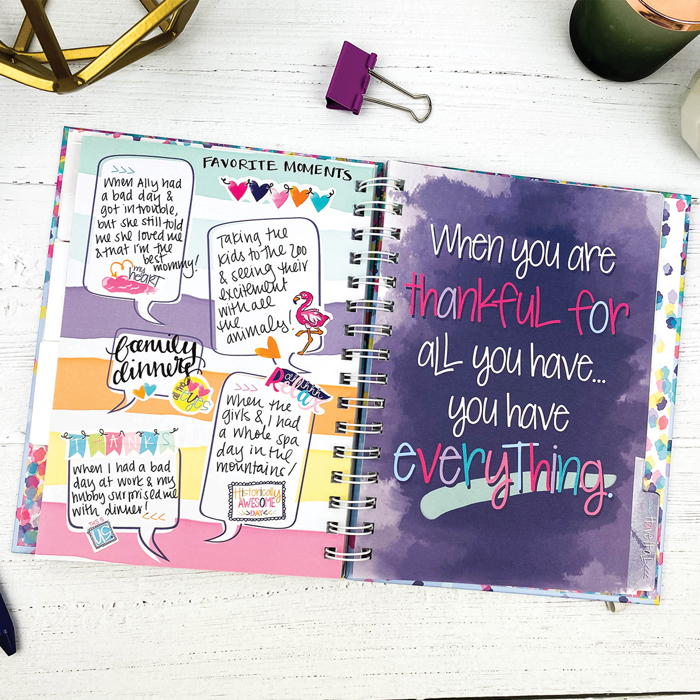 FAVORITE MOMENTS
When Ally had
a bad day &
got in trouble,
but she still told
me she loved me
& that I'm the
best
mommy!
my
HEART
Taking the
kids to the zoo
& seeing their
excitement
with all
the
animals!
family
dinners
ahhhh
Relax
THANKS
When I had a bad
day at work & my
hubby surprised me
with dinner!
THIS IS
US
When the
girls & I had
a whole spa
day in the
mountains!
HISTORICALLY
AWESOME
DAY
When you are
thankful for
all you have...
you have
everything.